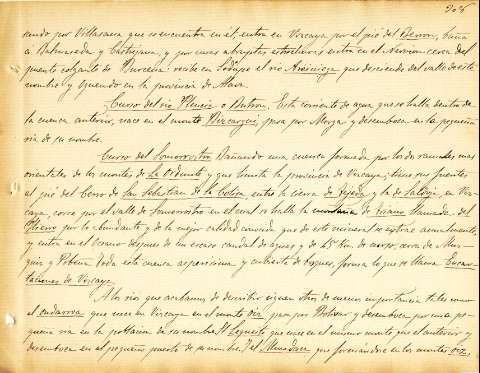 sando por Villasana que se encuentra en él, entra en Vizcaya por el pié del Berron, baña
á Balmaseda y Castrejana, y por unas abruptas estrechuras entra en el Nervion cerca del
puente colgante de Burceña: recibe en Sodupe el rio Arciniega que desciende del valle de este
nombre y Oquendo en la provincia de Alava.
Curso del rio Plencia ó Butron. Esta corriente de agua, que se halla dentro de
la cuenca anterior, nace en el monte Bizcargui, pasa por Morga y desemboca en la pequeña
ria de su nombre.
Curso del Somorrostro. Bañando una cuenca formada por los dos ramales mas
orientales de los montes de La Ordunte y que limita la provincia de Vizcaya; tiene sus fuentes
al pié del Cerro de San Sebastian de la Colisa, entre la sierra de y la de en Viz-
caya, corre por el valle de Somorrostro en el cual se halla la de Triano llamada, del
Hierro por lo abundante y de la mejor calidad conocida que de este mineral se extrae anualmente
y entra en el Oceano despues de un escaso caudal de aguas y de 25 km. de curso, cerca de Mus-
quiz y Pobeña. Toda esta cuenca asperisima y cubierta de bosques, forma lo que se llama Encar-
taciones de Vizcaya.
A los rios que acabamos de describir siguen otros de menos importancia tales como
el que nace en Vizcaya en el monte Oiz, pasa por Bolivar y desemboca por una pe-
queña ria en la poblacion de su nombre. El Lequeitio que nace en el mismo monte que el anterior y
desemboca en el pequeño puerto de su nombre, y el Mundaca que formándose en los montes Oiz,